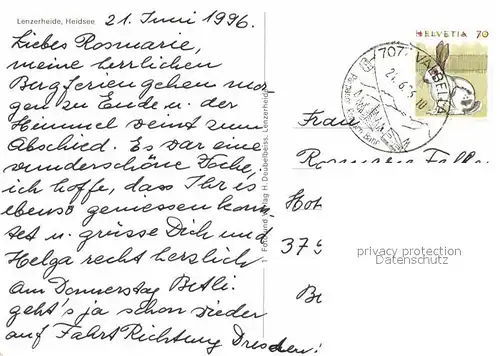 Lenzerheide, Heidsee
21. Juni 1996.
Liebes Rosmarie,
meine herrlichen
Bergferien gehen mor
gen zu Ende u. der
Himmel weint zum
Abschied. Es war eine
wunderschöne Woche,
ich hoffe, dass Ihr is
ebenso geniessen konn
tet u. grüsse Dich und
Helga recht herzlich
Betli.
Am Donnerstag
geht's ja schon wieder
auf Fahrt Richtung Dresden!
Foto und Verlag H. Doebelbeiss, Lenzerheide
HELVETIA 70
707 VALBELLA
Frau
Rosmarie
Hot
379
privacy protection
Datenschutz